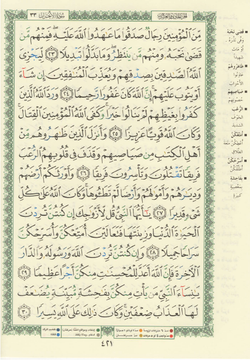 ٣٣
مِّنَ ٱلْمُؤْمِنِينَ رِجَالٌ صَدَقُوا۟ مَا عَٰهَدُوا۟ ٱللَّهَ عَلَيْهِ فَمِنْهُم مَّن
قَضَىٰ نَحْبَهُۥ وَمِنْهُم مَّن يَنتَظِرُ وَمَا بَدَّلُوا۟ تَبْدِيلًا ٢٣ لِّيَجْزِىَ
ٱللَّهُ ٱلصَّٰدِقِينَ بِصِدْقِهِمْ وَيُعَذِّبَ ٱلْمُنَٰفِقِينَ إِن شَآءَ
أَوْ يَتُوبَ عَلَيْهِمْ إِنَّ ٱللَّهَ كَانَ غَفُورًا رَّحِيمًا ٢٤ وَرَدَّ ٱللَّهُ ٱلَّذِينَ
كَفَرُوا۟ بِغَيْظِهِمْ لَمْ يَنَالُوا۟ خَيْرًا وَكَفَى ٱللَّهُ ٱلْمُؤْمِنِينَ ٱلْقِتَالَ
وَكَانَ ٱللَّهُ قَوِيًّا عَزِيزًا ٢٥ وَأَنزَلَ ٱلَّذِينَ ظَٰهَرُوهُم مِّنْ
أَهْلِ ٱلْكِتَٰبِ مِن صَيَاصِيهِمْ وَقَذَفَ فِى قُلُوبِهِمُ ٱلرُّعْبَ
فَرِيقًا تَقْتُلُونَ وَتَأْسِرُونَ فَرِيقًا ٢٦ وَأَوْرَثَكُمْ أَرْضَهُمْ
وَدِيَٰرَهُمْ وَأَمْوَٰلَهُمْ وَأَرْضًا لَّمْ تَطَـُٔوهَا وَكَانَ ٱللَّهُ عَلَىٰ كُلِّ
شَىْءٍ قَدِيرًا ٢٧ يَٰٓأَيُّهَا ٱلنَّبِىُّ قُل لِّأَزْوَٰجِكَ إِن كُنتُنَّ تُرِدْنَ
ٱلْحَيَوٰةَ ٱلدُّنْيَا وَزِينَتَهَا فَتَعَالَيْنَ أُمَتِّعْكُنَّ وَأُسَرِّحْكُنَّ
سَرَاحًا جَمِيلًا ٢٨ وَإِن كُنتُنَّ تُرِدْنَ ٱللَّهَ وَرَسُولَهُۥ وَٱلدَّارَ
ٱلْءَاخِرَةَ فَإِنَّ ٱللَّهَ أَعَدَّ لِلْمُحْسِنَٰتِ مِنكُنَّ أَجْرًا عَظِيمًا ٢٩
يَٰنِسَآءَ ٱلنَّبِىِّ مَن يَأْتِ مِنكُنَّ بِفَٰحِشَةٍ مُّبَيِّنَةٍ يُضَٰعَفْ
لَهَا ٱلْعَذَابُ ضِعْفَيْنِ وَكَانَ ذَٰلِكَ عَلَى ٱللَّهِ يَسِيرًا ٣٠
٤٢١